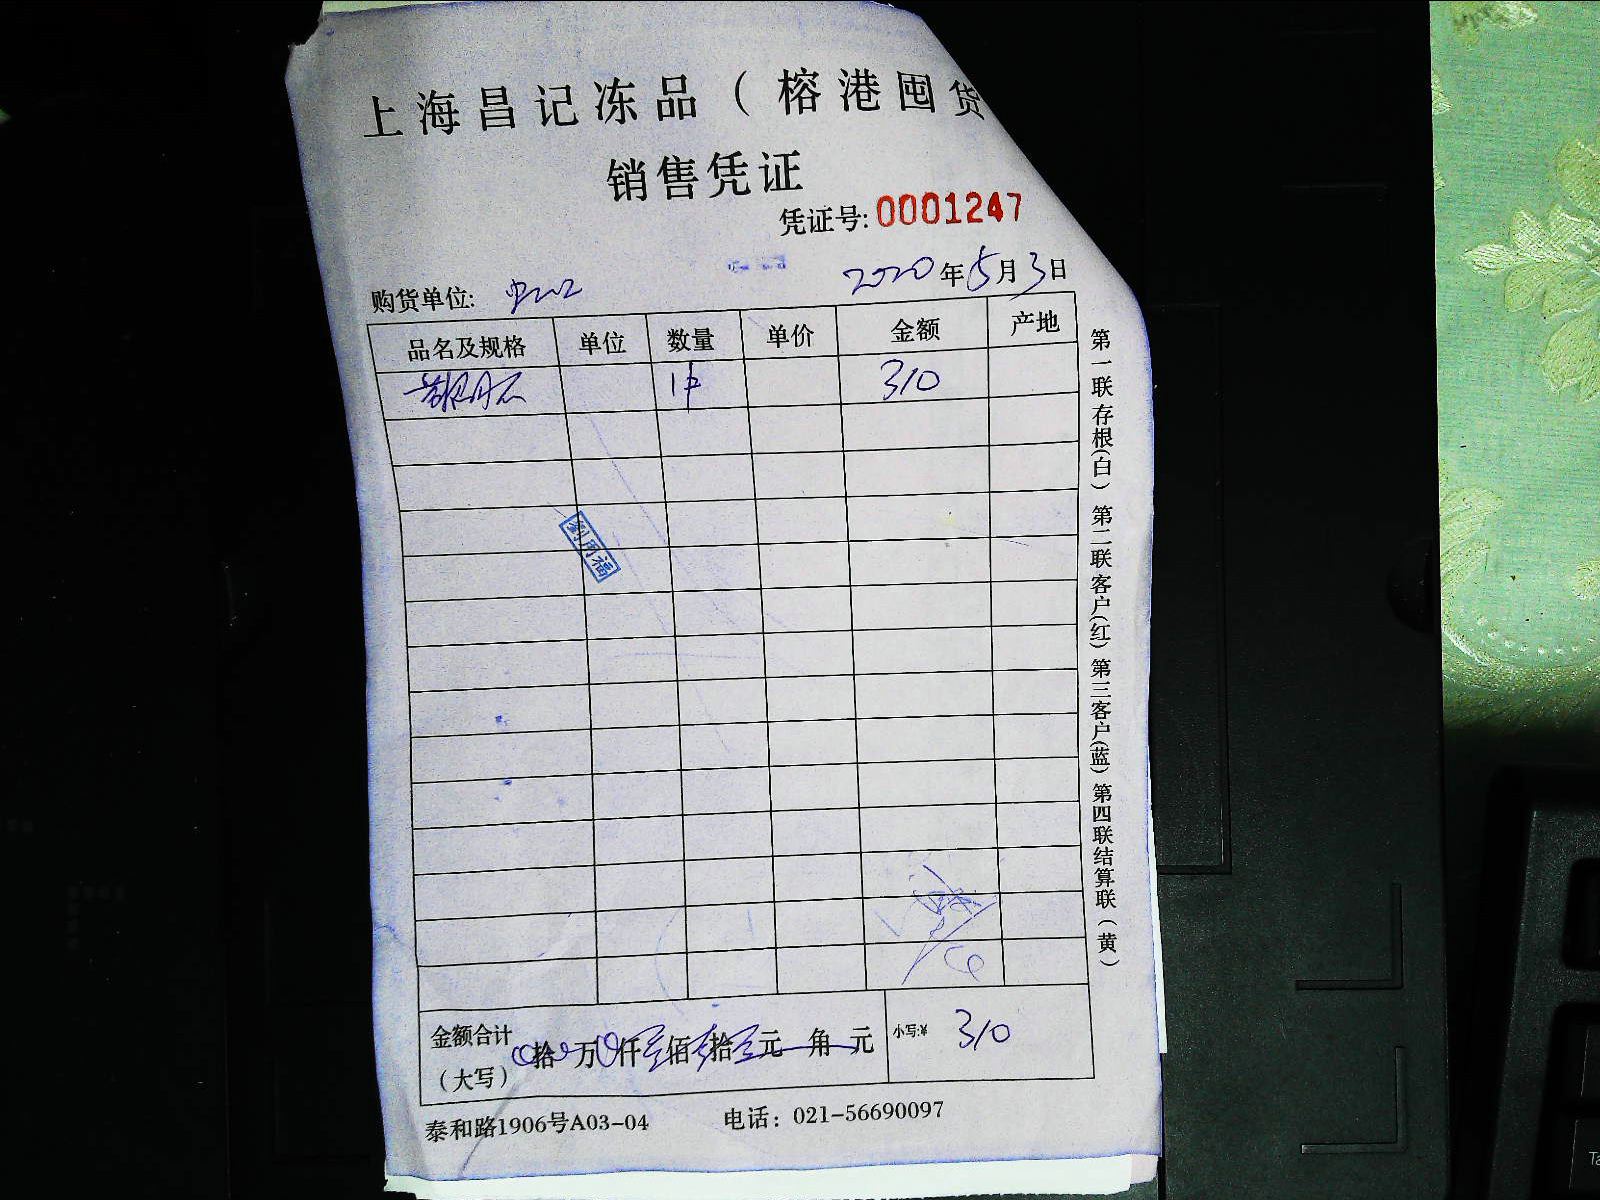 上海昌记冻品（榕港囤货
销售凭证
凭证号: 0001247
购货单位:
2020年5月3日
品名及规格 单位 数量 单价 金额 产地
1件 310
刘周福
金额合计 拾 万 仟 佰 拾 元 角 元 小写:¥ 310
（大写）
泰和路1906号A03-04 电话：021-56690097
第一联存根(白) 第二联客户(红) 第三客户(蓝) 第四联结算联(黄)